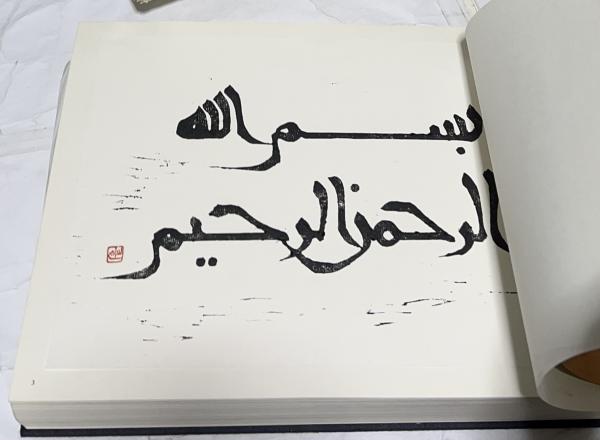 بسم الله
الرحمن الرحيم
3